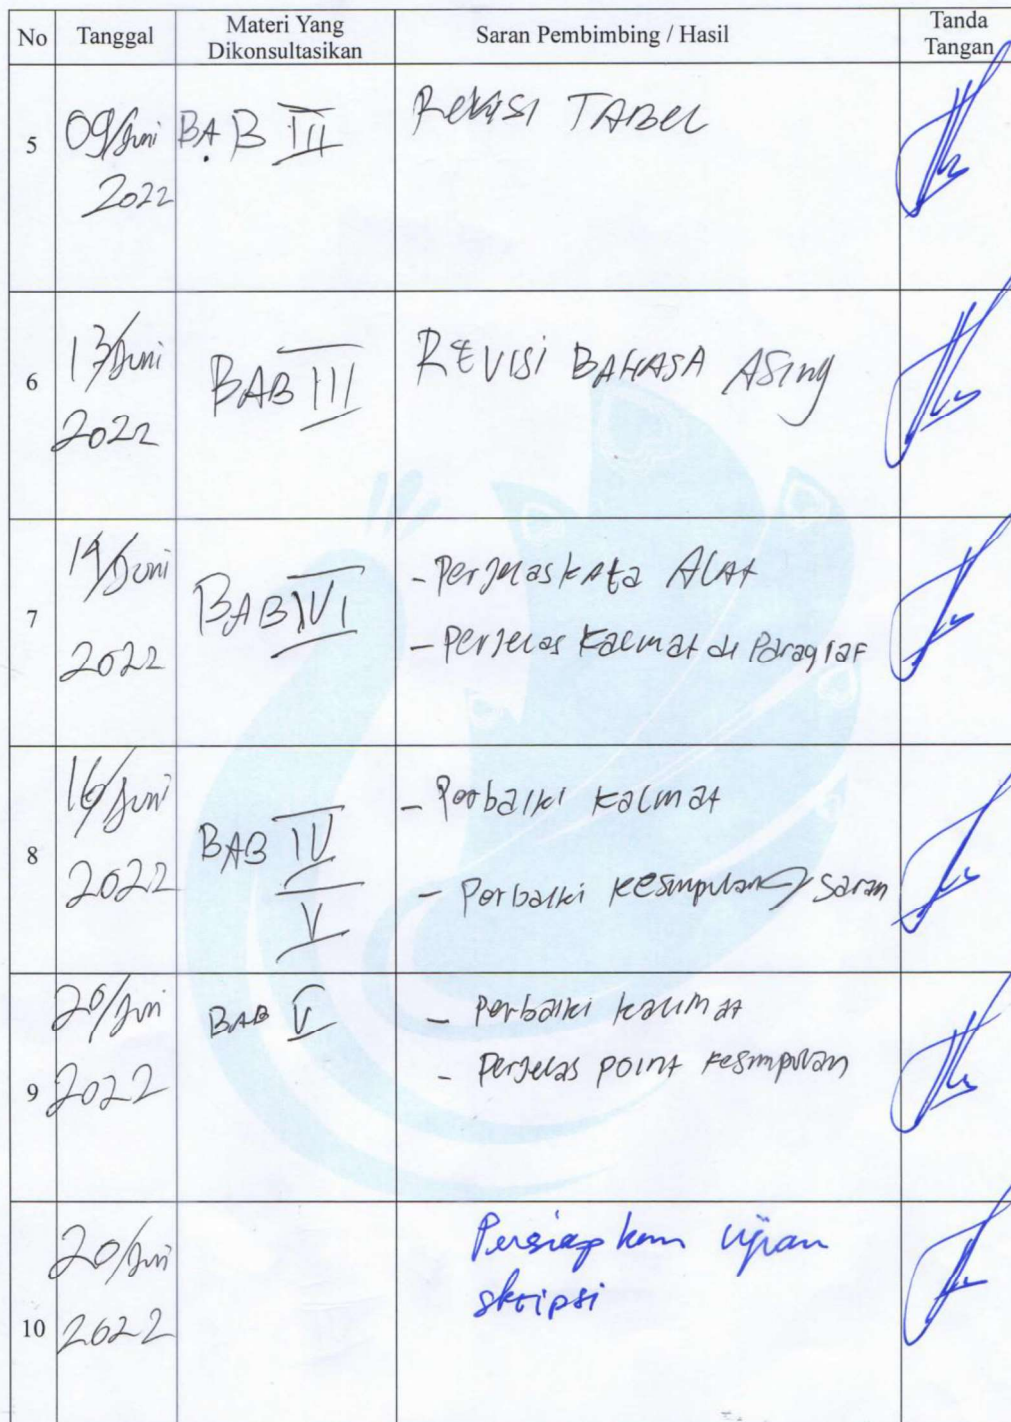 No Tanggal Materi Yang Dikonsultasikan Saran Pembimbing / Hasil Tanda Tangan
5 09/Juni 2022 BAB III Revisi TABEL
6 13/Juni 2022 BAB III REVISI BAHASA Asing
7 14/Juni 2022 BAB IV - Perjelas kata Alat
- Perjelas Kalimat di Paragraf
8 16/Juni 2022 BAB IV - Perbaiki kalimat
V - Perbaiki kesimpulan saran
9 20/Juni 2022 BAB V - Perbaiki kalimat
- Perjelas point kesimpulan
10 20/Juni 2022 Persiapkan ujian
skripsi